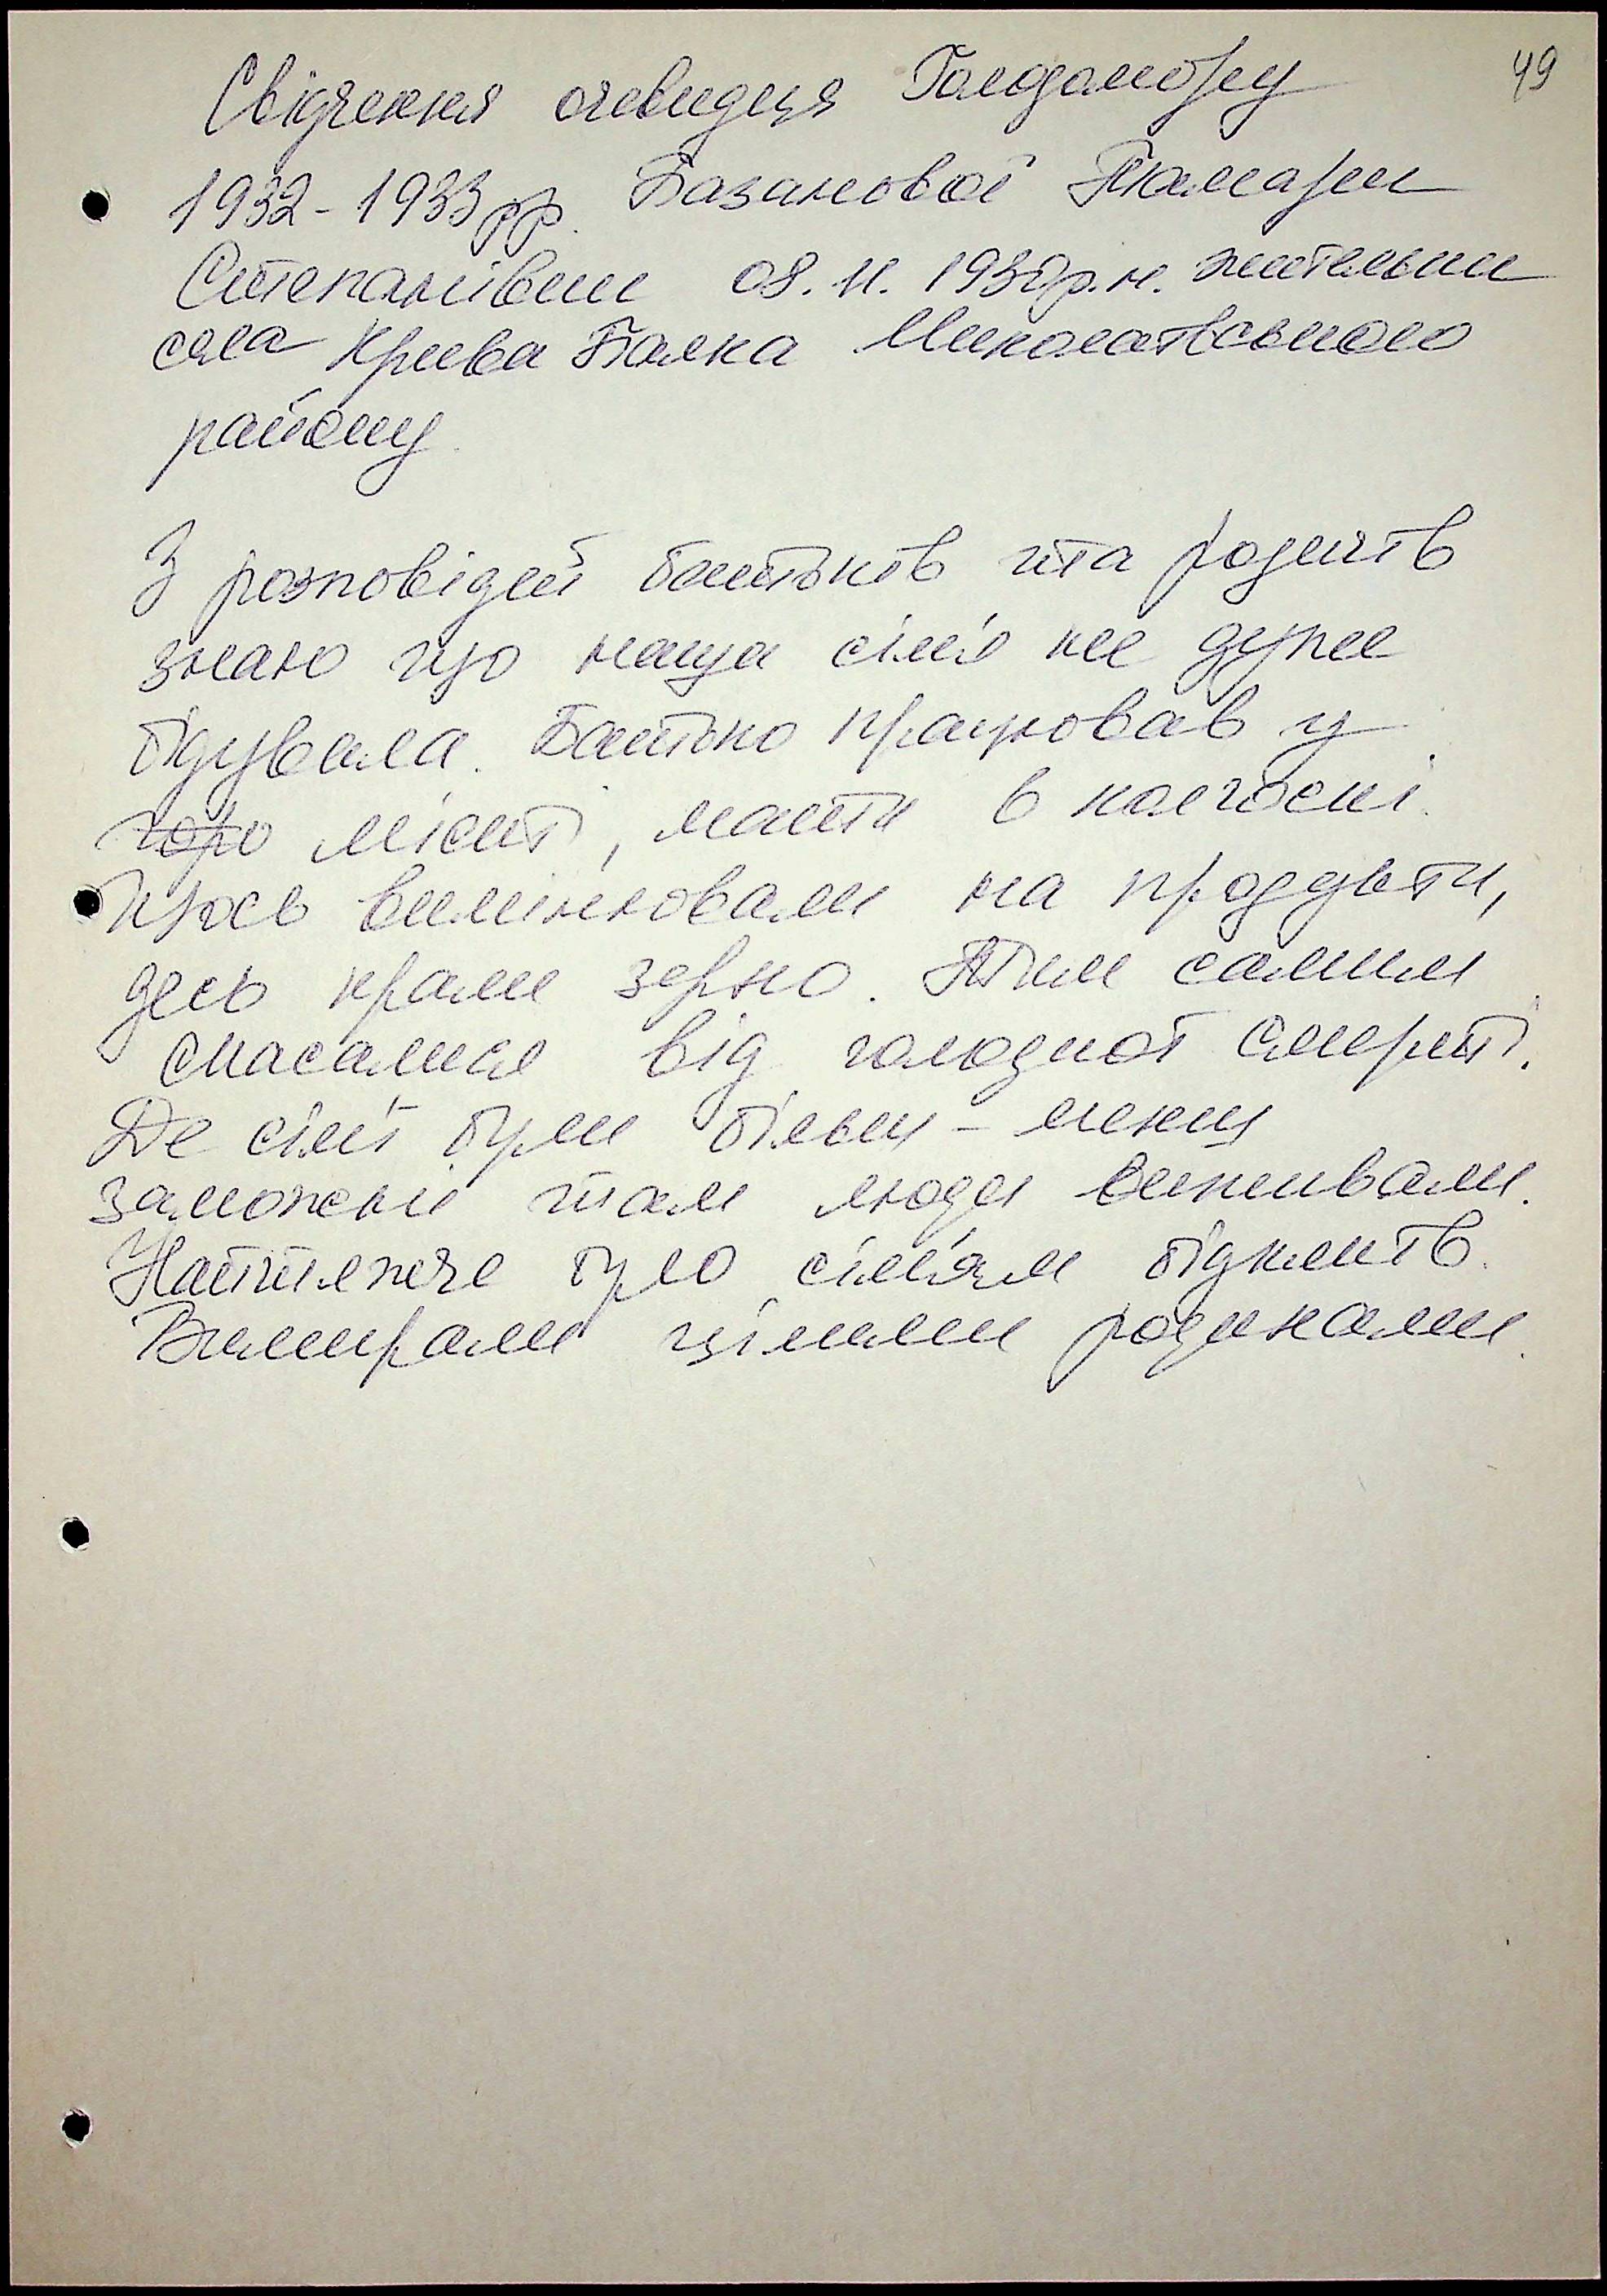 49
Свідчення очевидця Голодомору
1932-1933 рр. Базанової Тамари
Степанівни 08.11.1932р.н. жительки
села Крива Балка Миколаївського
району.
З розповідей батьків та родичів
знаю що наша сім'я не дуже
бідувала. Батько працював у
місті, мати в колгоспі.
Щось вимінювали на продукти,
десь крали зерно. Тим самим
спасалися від голодної смерті.
Де сім'ї були більш - менш
заможні там люди виживали.
Найтяжче було сім'ям бідняків.
Вимирали цілими родинами.